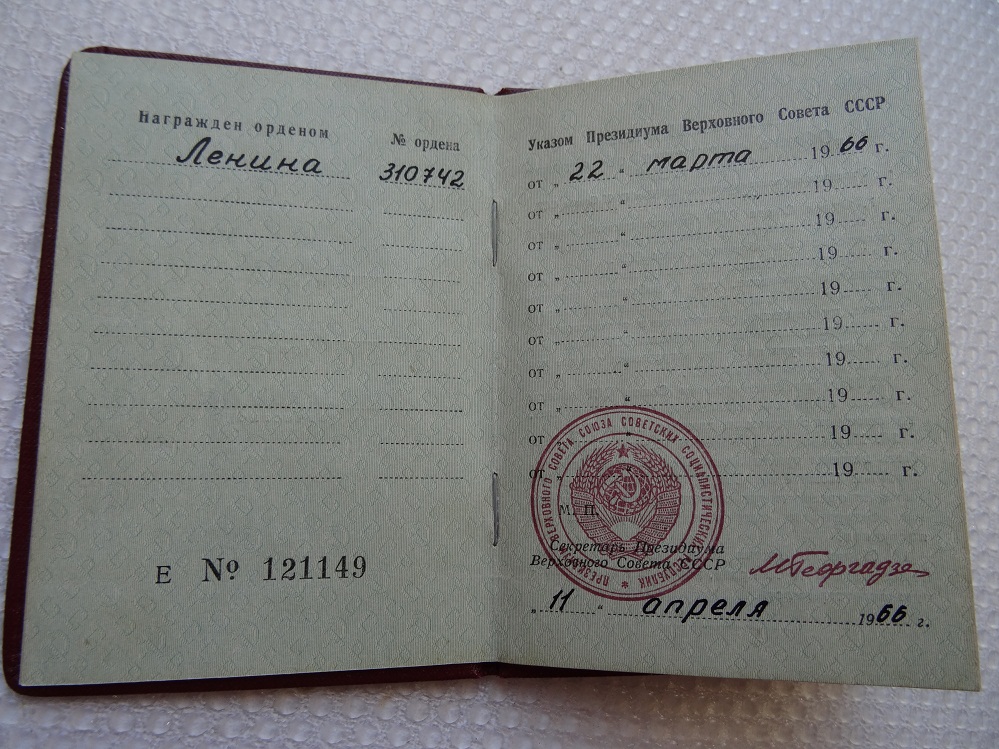 Награжден орденом
№ ордена
Ленина
310742
Е № 121149
Указом Президиума Верховного Совета СССР
от „ 22 “ марта 1966 г.
от „ “ 19 г.
от „ “ 19 г.
от „ “ 19 г.
от „ “ 19 г.
от „ “ 19 г.
от „ “ 19 г.
от „ “ 19 г.
от „ “ 19 г.
от „ “ 19 г.
ПРЕЗИДИУМ ВЕРХОВНОГО СОВЕТА СОЮЗА СОВЕТСКИХ СОЦИАЛИСТИЧЕСКИХ РЕСПУБЛИК
М. П.
Секретарь Президиума
Верховного Совета СССР
МГеоргадзе
„ 11 “ апреля 1966 г.